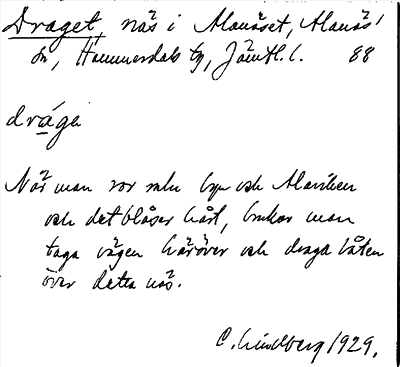 Draget, näs i Alanäset, Alanäs
sn, Hammerdals tg, Jämtl. l. 88
drági
När man ror mln byn och Alaviken
och det blåser hårt, brukar man
taga vägen häröver och draga båten
över detta näs.
C. Lindberg 1929.